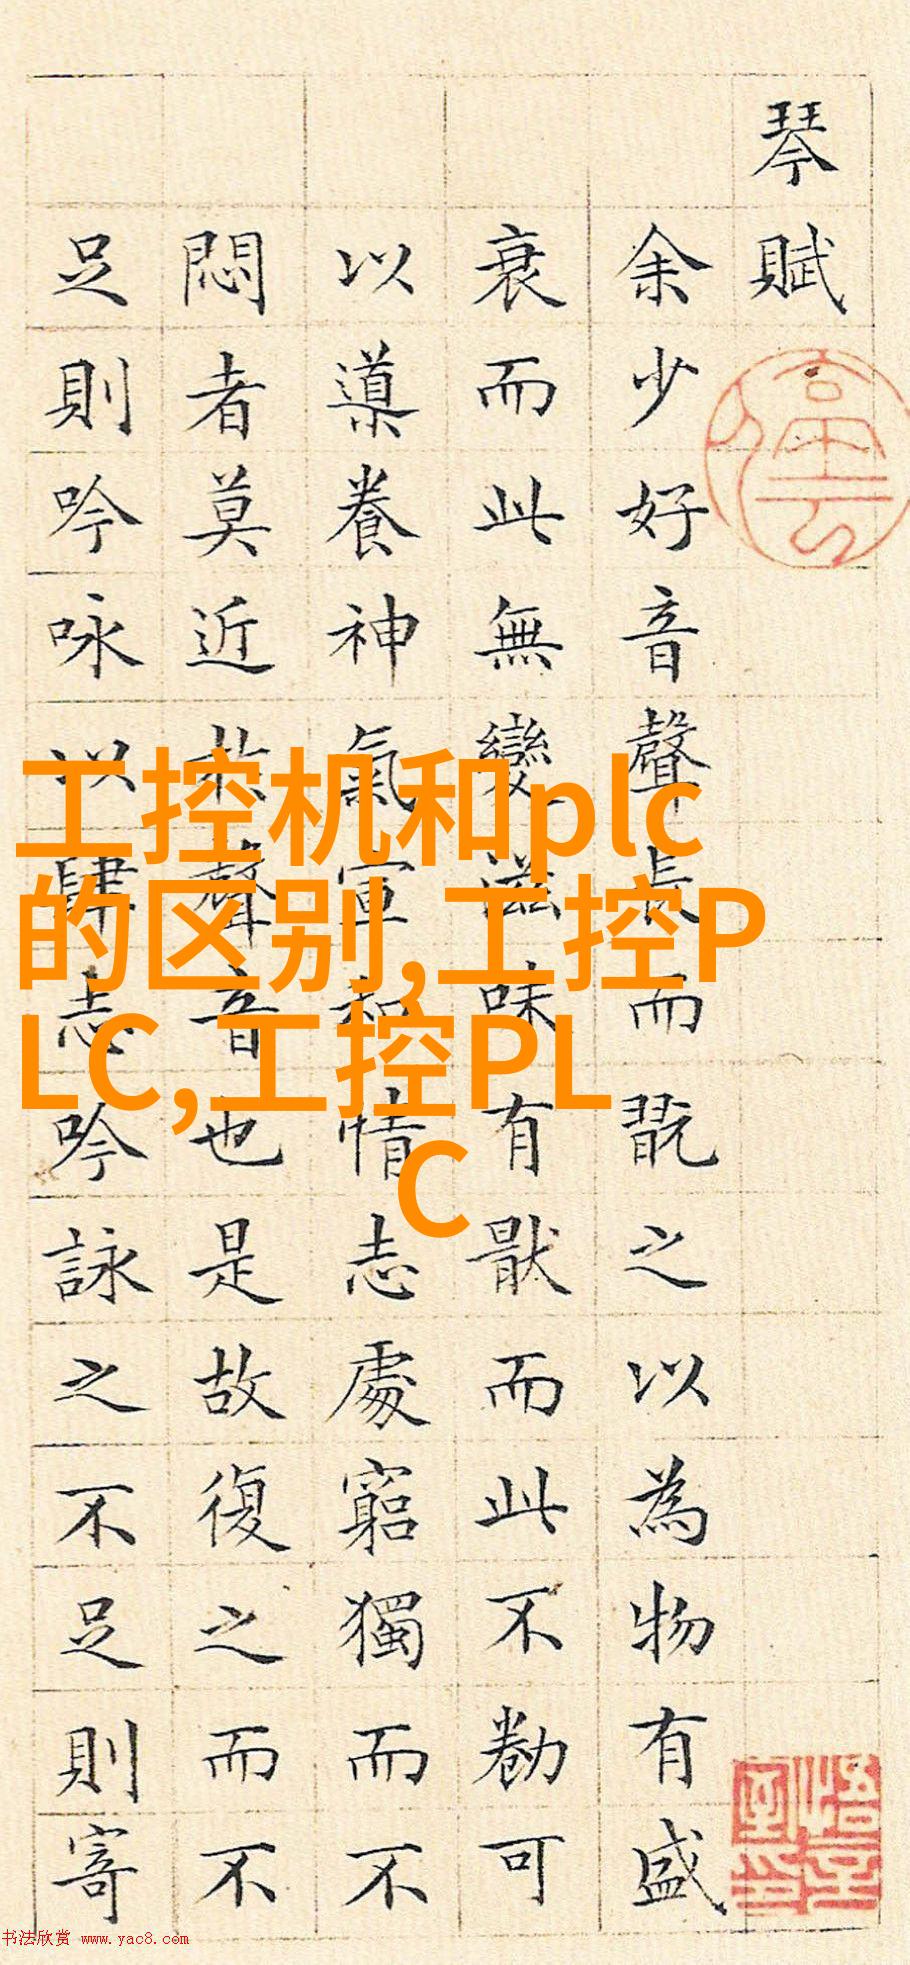 琴賦
余少好音聲長而翫之以為物有盛
衰而此無變滋味有猒而此不勌可
以導養神氣宣和情志處窮獨而不
悶者莫近於聲音也是故復之而不
足則吟咏以肆志吟詠之不足則寄
工控机和plc
的区别,工控P
LC,工控PL
C
书法欣赏 www.yac8.com